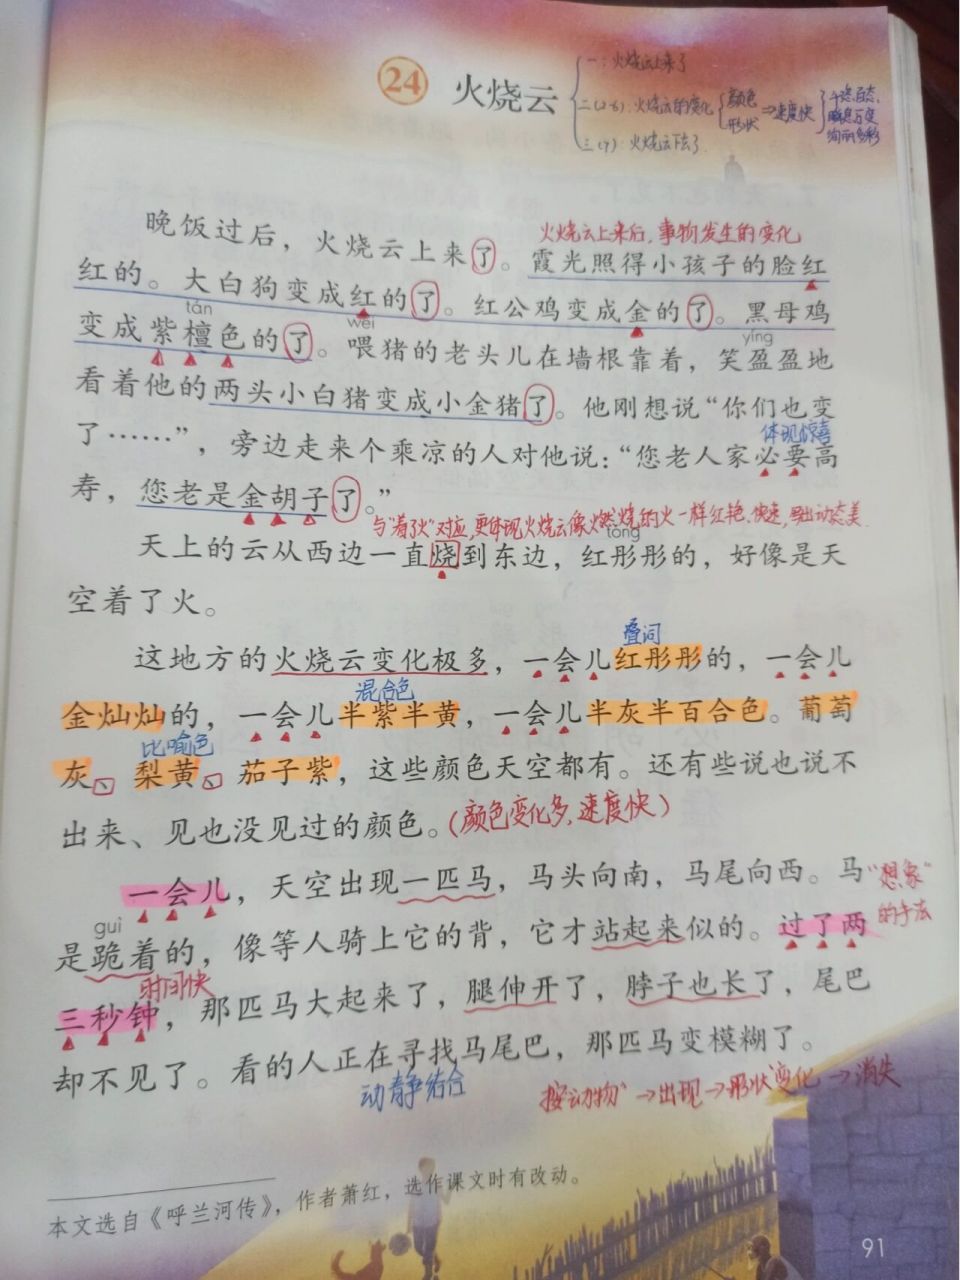 24 火烧云
一：火烧云上来了
二(2-6)：火烧云的变化 颜色 形状 →速度快 千姿百态、瞬息万变 绚丽多彩
三(7)：火烧云下去了
火烧云上来后，事物发生的变化
晚饭过后，火烧云上来了。霞光照得小孩子的脸红
红的。大白狗变成红的了。红公鸡变成金的了。黑母鸡
tán wèi yíng
变成紫檀色的了。喂猪的老头儿在墙根靠着，笑盈盈地
看着他的两头小白猪变成小金猪了。他刚想说“你们也变
体现惊喜
了……”，旁边走来个乘凉的人对他说：“您老人家必要高
寿，您老是金胡子了。”
与“着了火”对应，更体现火烧云像燃烧的火一样红艳、快速，写出动态美.
tóng
天上的云从西边一直烧到东边，红彤彤的，好像是天
空着了火。
叠词
这地方的火烧云变化极多，一会儿红彤彤的，一会儿
混合色
金灿灿的，一会儿半紫半黄，一会儿半灰半百合色。葡萄
比喻色
灰、梨黄、茄子紫，这些颜色天空都有。还有些说也说不
出来、见也没见过的颜色。(颜色变化多、速度快)
一会儿，天空出现一匹马，马头向南，马尾向西。马
“想象”
的手法
guì
是跪着的，像等人骑上它的背，它才站起来似的。过了两
时间快
三秒钟，那匹马大起来了，腿伸开了，脖子也长了，尾巴
却不见了。看的人正在寻找马尾巴，那匹马变模糊了。
动静结合
按动物→出现→形状变化→消失
本文选自《呼兰河传》，作者萧红，选作课文时有改动。
91